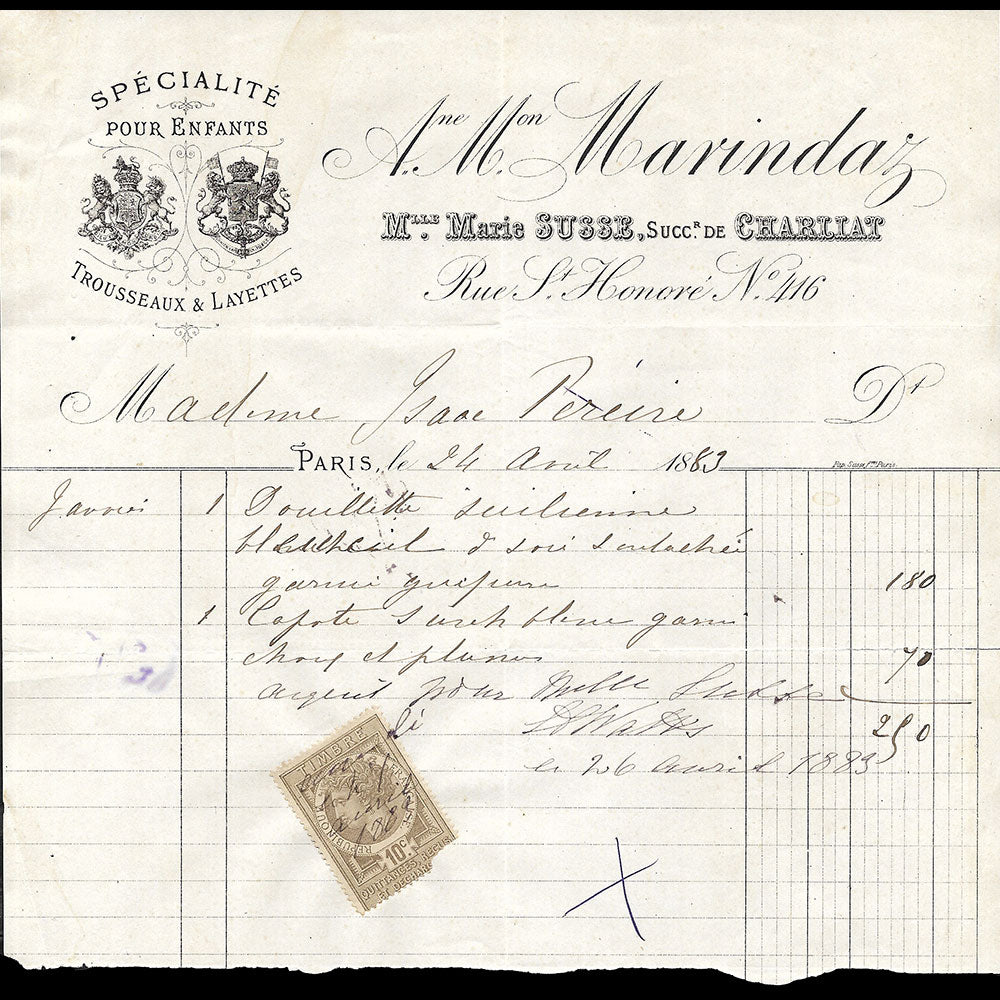 SPÉCIALITÉ
POUR ENFANTS
TROUSSEAUX & LAYETTES
Aⁿᵉ Mᵒⁿ A. M. Marindaz
Mˡˡᵉ Marie SUSSE, Succʳ DE CHARLIAT
Rue Sᵗ Honoré Nº 416
Madame Isaac Péreire Dᵗ
PARIS, le 24 Avril 1883
Pap. Susse fres Paris.
Janvier 1 Douillette sicilienne
bleu ciel & soie soutachée
garnie guipure 180
1 Capote surah bleue garni
choux et plumes 70
argent pour Melle Susse
250
le 26 avril 1883
TIMBRE
RÉPUBLIQUE FRANÇAISE
1883
10c
QUITTANCES, REÇUS
ET DÉCHARG